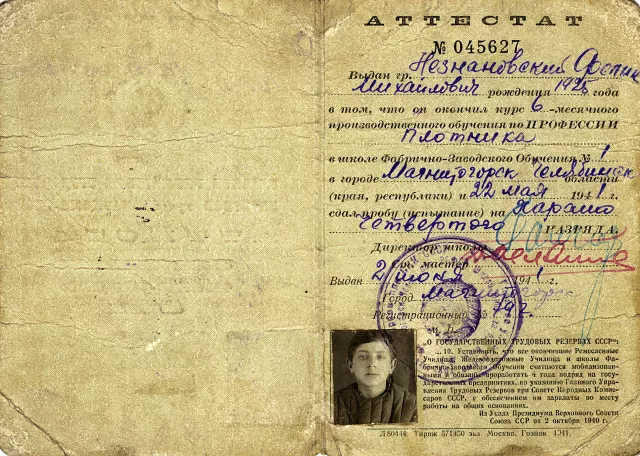 АТТЕСТАТ
№ 045627
Выдан гр. Незнановский
Михайлович рождения 1925 года
в том, что он окончил курс 6 -месячного
производственного обучения по ПРОФЕССИИ
Плотника
в школе Фабрично-Заводского Обучения № 1
в городе Магнитогорск Челябинск области
(края, республики) и 22 мая 1941 г.
сдал пробу (испытание) на хорошо
Четвертого РАЗРЯДА.
Директор школы
Ст. мастер
Выдан 2 июня 1941
Город
Регистрационный № 79 г.
"О ГОСУДАРСТВЕННЫХ ТРУДОВЫХ РЕЗЕРВАХ СССР":
... 10. Установить, что все окончившие Ремесленные
Училища, Железнодорожные Училища и школы Фа-
брично-Заводского Обучения считаются мобилизован-
ными и обязаны проработать 4 года подряд на госу-
дарственных предприятиях, по указанию Главного Упра-
вления Трудовых Резервов при Совете Народных Комис-
саров СССР, с обеспечением им зарплаты по месту
работы на общих основаниях.
Из Указа Президиума Верховного Совета
Союза ССР от 2 октября 1940 г.
Л80444. Тираж 571450 экз. Москва. Гознак. 1941.